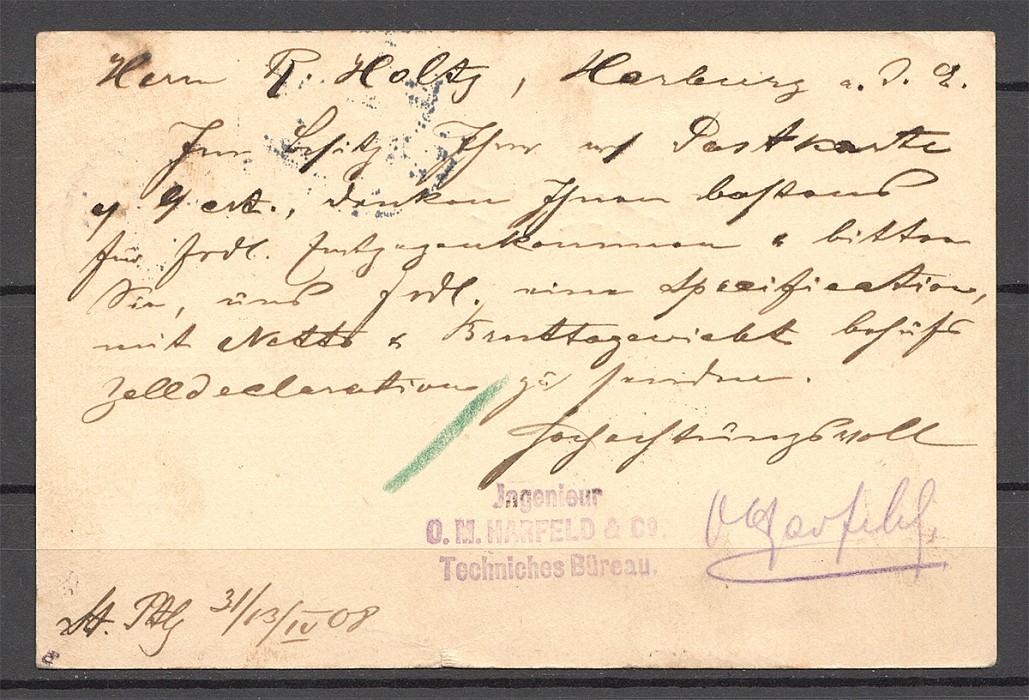 Herrn R. Holtz, Harburg a. d. E.
Im Besitz Ihrer Postkarte
v 9 crt., danken Ihnen bestens
für frdl. Entgegenkommen & bitten
Sie, uns frdl. eine Specification,
mit Netto & Bruttogewicht behufs
Zolldeclaration zu senden.
Hochachtungsvoll
Jngenieur
O. M. HARFELD & Co.
Techniches Büreau.
OHarfeld
St. Ptbg 31/13/IV 08